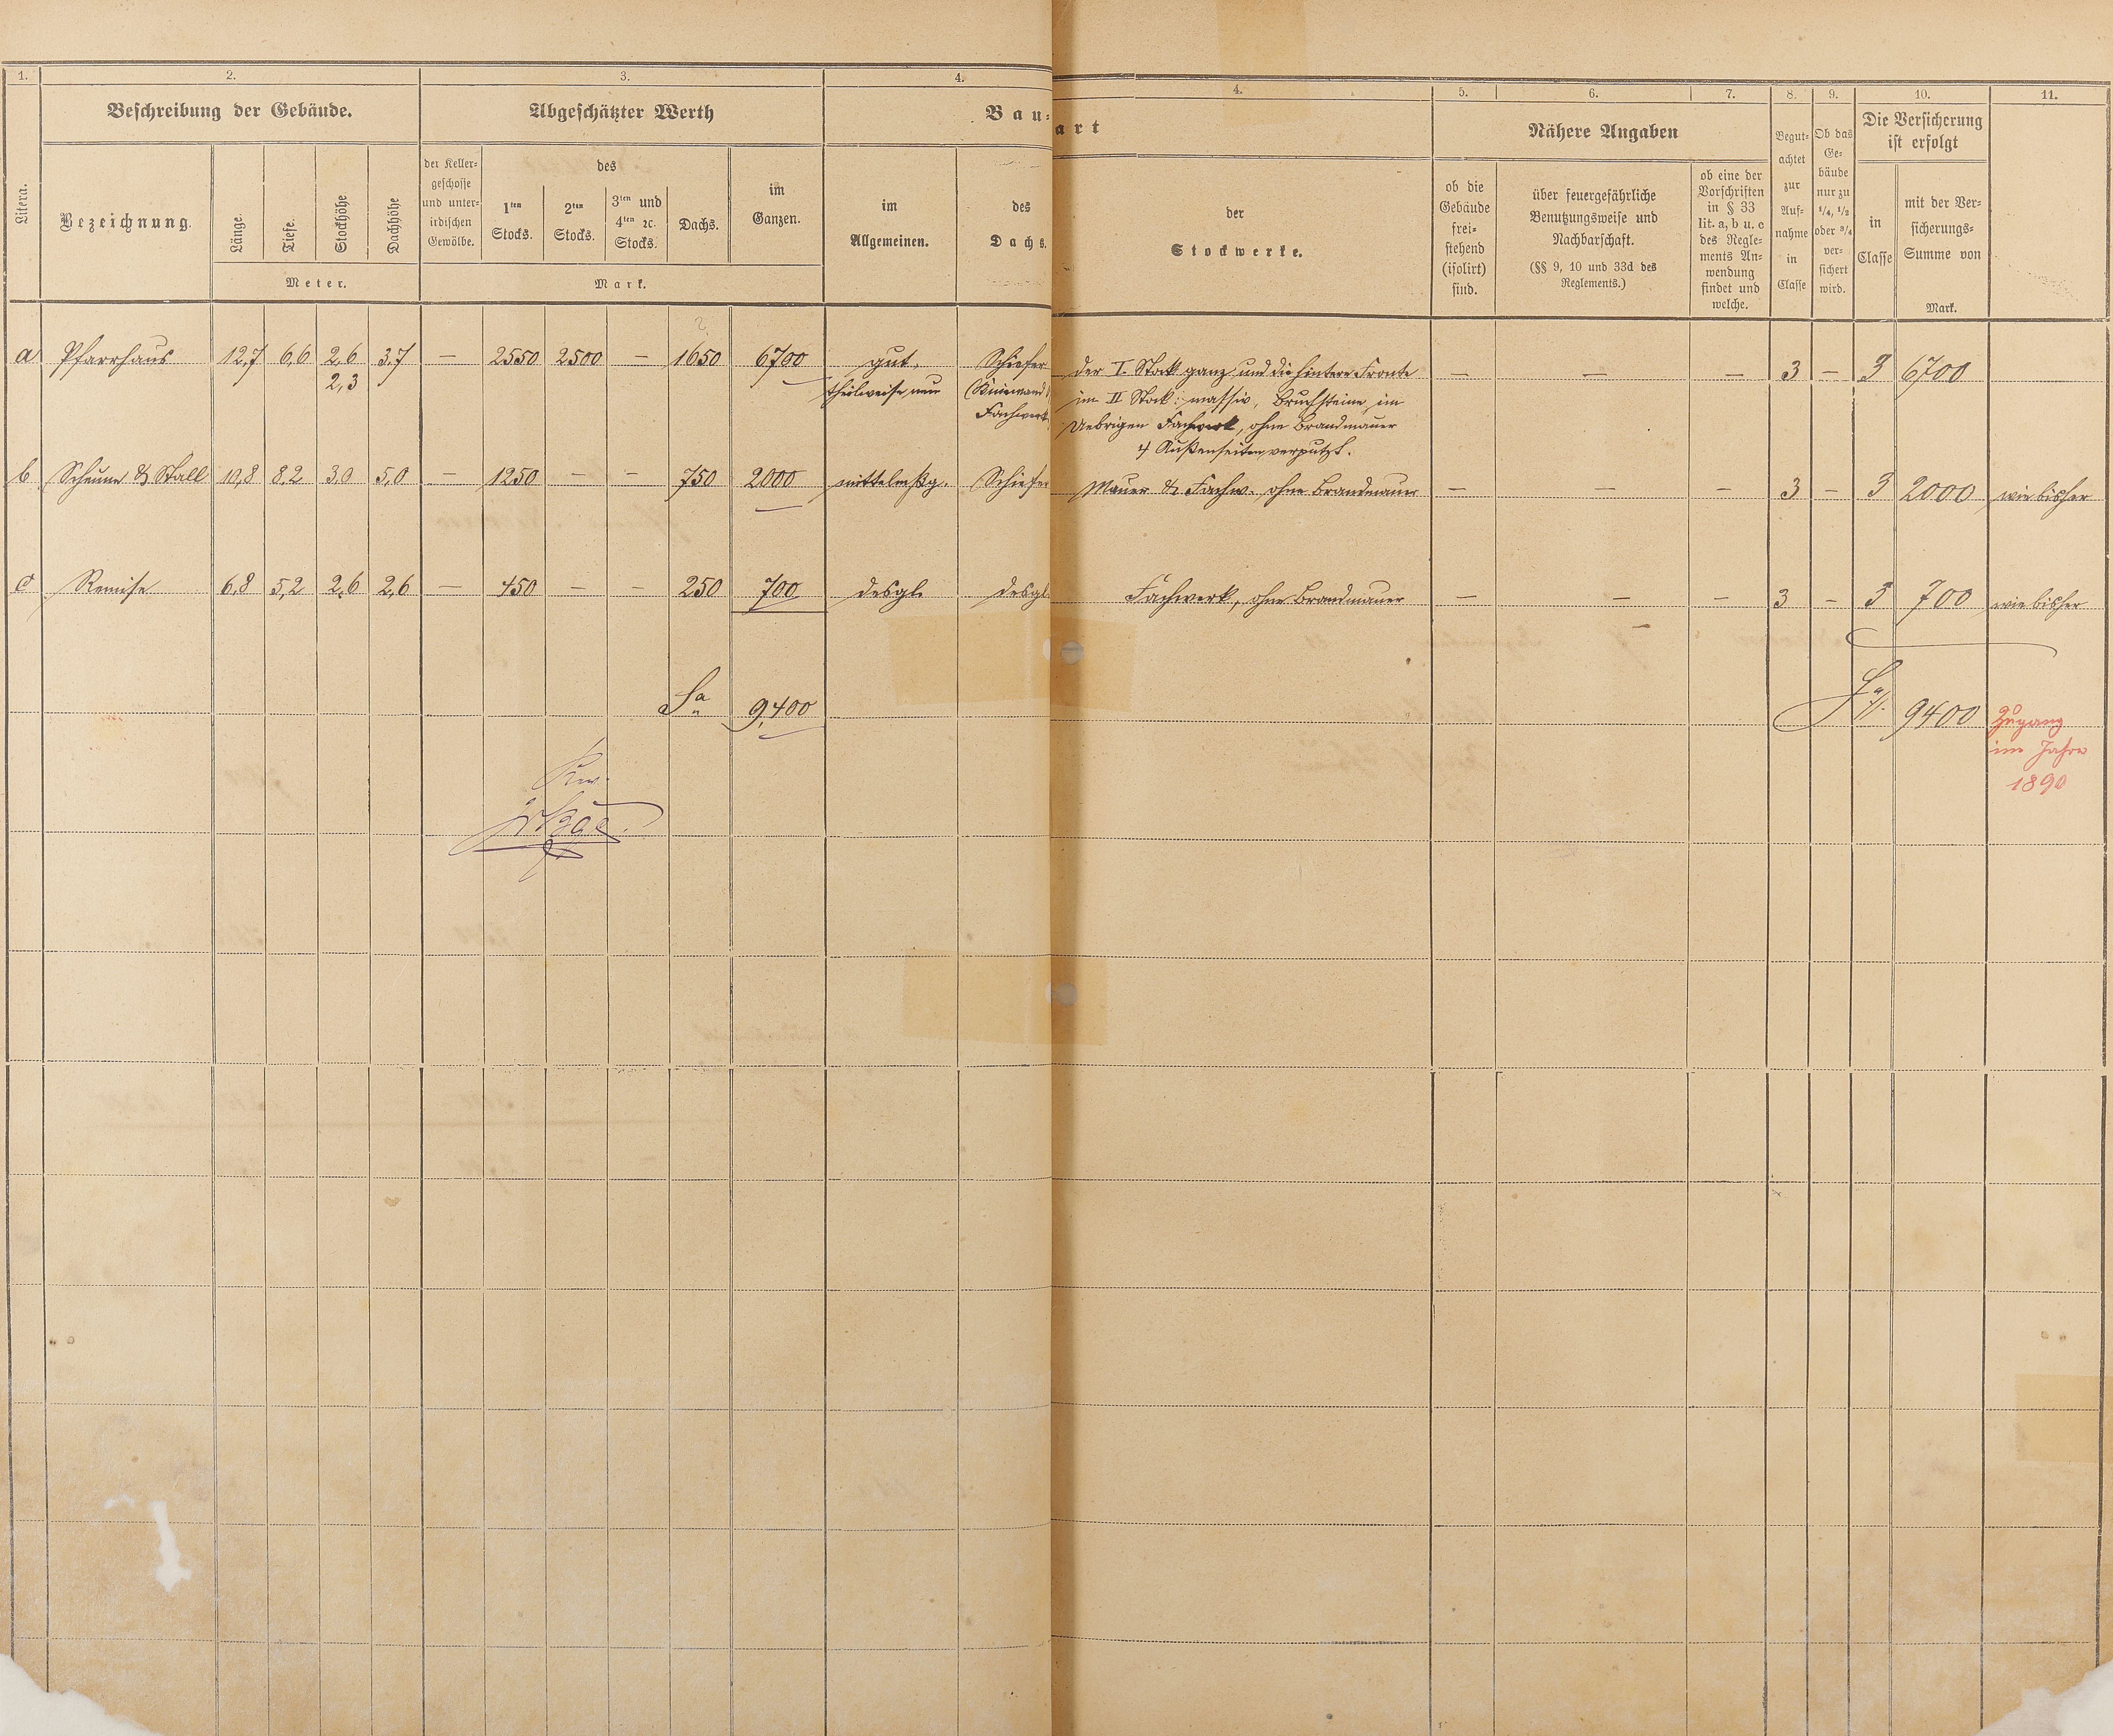 1.
2.
3.
4.
4.
5.
6.
7.
8.
9.
10.
11.
Litera.
Beschreibung der Gebäude.
Bezeichnung.
Länge.
Tiefe.
Stockhöhe
Dachhöhe
Meter.
Abgeschätzter Werth
der Keller-
geschosse
und unter-
irdischen
Gewölbe.
des
1ten
Stocks.
2ten
Stocks.
3ten und
4ten ꝛc.
Stocks.
Dachs.
im
Ganzen.
Mark.
Bau-
art
im
Allgemeinen.
des
Dachs.
der
Stockwerke.
Nähere Angaben
ob die
Gebäude
frei-
stehend
(isolirt)
sind.
über feuergefährliche
Benutzungsweise und
Nachbarschaft.
(§§ 9, 10 und 33d des
Reglements.)
ob eine der
Vorschriften
in § 33
lit. a, b u. c
des Regle-
ments An-
wendung
findet und
welche.
Begut-
achtet
zur
Auf-
nahme
in
Classe
Ob das
Ge-
bäude
nur zu
1/4, 1/2
oder 3/4
ver-
sichert
wird.
Die Versicherung
ist erfolgt
in
Classe
mit der Ver-
sicherungs-
Summe von
Mark.
a Pfarrhaus 12,7 6,6 2,6 3,7 — 2550 2500 — 1650 6700 gut, Schiefer der I. Stock ganz und die hintere Fronte — — — 3 — 3 6700
2,3 theilweise neu im II Stock: massiv, Bruchsteine, im
Fachwerk Uebrigen Fachwerk, ohne Brandmauer
Außenseiten verputzt.
b Scheune & Stall 10,8 8,2 3,0 5,0 — 1250 — — 750 2000 mittelmßg. Schiefer Mauer & Fachw. ohne Brandmauer — — — 3 — 3 2000 wie bisher
c Remise 6,8 5,2 2,6 2,6 — 450 — — 250 700 desgl. desgl. Fachwerk, ohne Brandmauer — — — 3 — 3 700 wie bisher
Sa 9,400 Sa 9400 Zugang
im Jahre
1890